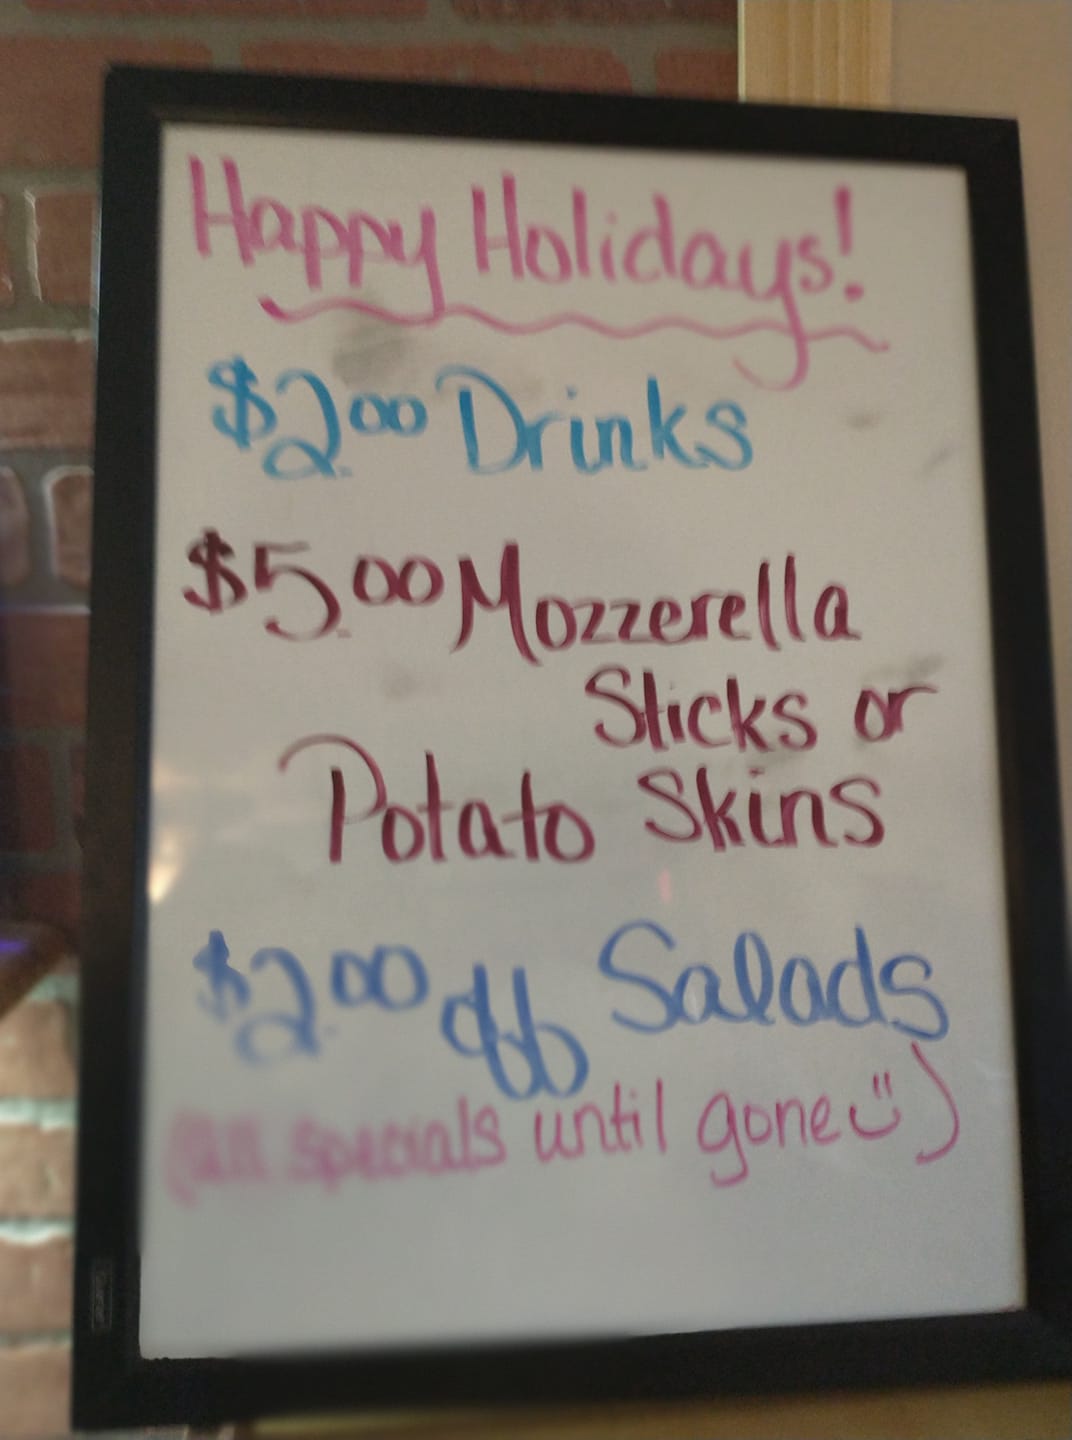 Happy Holidays!
$2.00 Drinks
$5.00 Mozzerella
Sticks or
Potato Skins
$2.00 off Salads
(all specials until gone ü)